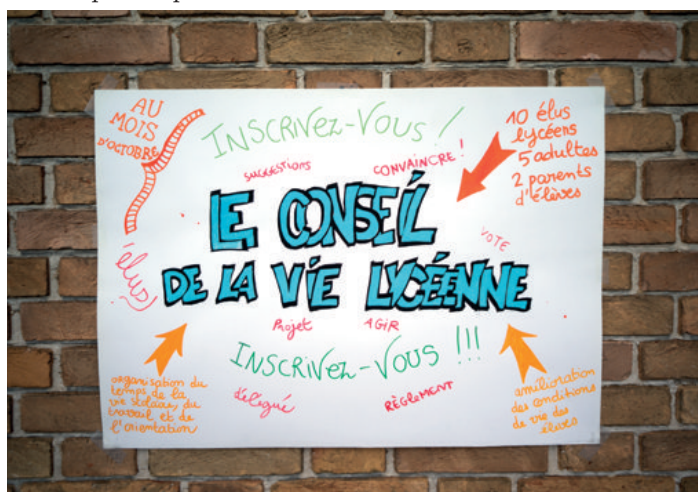 AU
MOIS
D'OCTOBRE
INSCRIVEZ-VOUS !
10 élus
lycéens
5 adultes
2 parents
d'élèves
SUGGESTIONS
CONVAINCRE !
LE CONSEIL
VOTE
élus
DE LA VIE LYCÉENNE
Projet
AGIR
INSCRIVEZ-VOUS !!!
organisation du
temps de la
vie scolaire, du
travail et de
l'orientation
délégué
RÈGLEMENT
amélioration
des conditions
de vie des
élèves